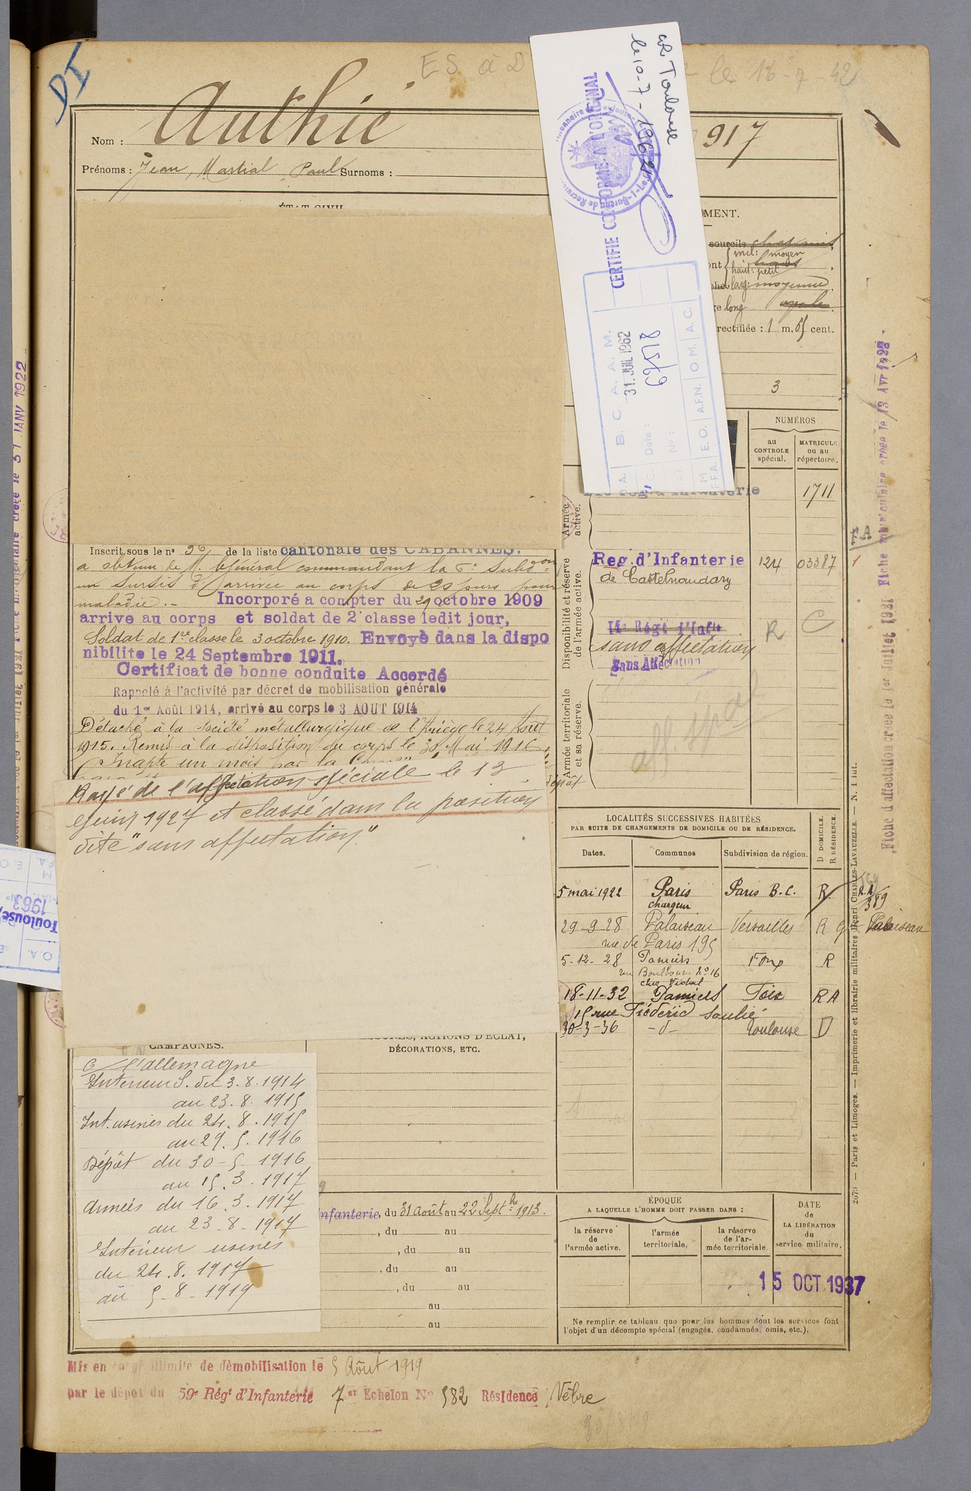 DI
ES à D
le 18-7-42
Nom : Authié
917
Prénoms : Jean, Martial, Paul Surnoms :
CR Toulouse
le 10-7-1962
CERTIFIÉ CONFORME A L'ORIGINAL
B. C. A. A. M.
31. JUIL 1962
Date :
N° :
67578
E.O. A.F.N. O.M. A.C.
ÉTAT CIVIL
MENT.
sourcils
incl: moyen
haut: petit
larg: moyenne
long
rectifiée : 1 m. cent.
3
NUMÉROS
au CONTROLE spécial.
MATRICULE ou au répertoire.
Armée active.
1711
Inscrit sous le n° 36 de la liste cantonale des CABANNES.
a obtenu de M. le Général commandant la subdon
un sursis d'arrivée au corps de 20 jours pour
maladie.- Incorporé a compter du 29 octobre 1909
arrive au corps et soldat de 2e classe ledit jour,
Soldat de 1re classe le 3 octobre 1910. Envoyé dans la dispo
nibilité le 24 Septembre 1911.
Certificat de bonne conduite Accordé
Rappelé à l'activité par décret de mobilisation générale
du 1er Août 1914, arrivé au corps le 3 AOUT 1914
Détaché à la société métallurgique de l'Ariège le 24 Août
1915. Remis à la disposition du corps le 30 Mai 1916.
Inapte un mois par la
Rayé de l'affectation spéciale le 13
Juin 1927 et classé dans la position
dite "sans affectation".
Disponibilité et réserve de l'armée active.
Reg. d'Infanterie
de Castelnaudary
124
03387
sans affectation
Sans Affectation
R
C
Armée territoriale et sa réserve.
aff spéc
LOCALITÉS SUCCESSIVES HABITÉES
PAR SUITE DE CHANGEMENTS DE DOMICILE OU DE RÉSIDENCE.
Dates.
Communes
Subdivision de région.
D DOMICILE.
R RÉSIDENCE.
5 mai 1922 Paris Paris B.C. R
chargeur
29-9-28 Palaiseau Versailles R
rue de Paris 195
Palaiseau
5-12-28 Pamiers Foix R
18-11-32 Pamiers Foix RA
15 rue Frédéric Soulié
30-3-36 -d- Toulouse D
CAMPAGNES.
ACTIONS D'ÉCLAT,
DÉCORATIONS, ETC.
C/ l'allemagne
Intérieur S. du 3.8.1914
au 23.8.1915
Int. usines du 24.8.1915
au 29.5.1916
Dépôt du 30-5-1916
au 15.3.1917
Armées du 16.3.1917
au 23-8-1917
Intérieur usines
du 24.8.1917
au 5-8-1919
Infanterie, du 31 août au 22 Septbre 1913.
, du au
, du au
, du au
, du au
au
au
ÉPOQUE
A LAQUELLE L'HOMME DOIT PASSER DANS :
la réserve de l'armée active.
l'armée territoriale.
la réserve de l'armée territoriale
DATE de LA LIBÉRATION du service militaire.
15 OCT 1937
Ne remplir ce tableau que pour les hommes dont les services font
l'objet d'un décompte spécial (engagés, condamnés, omis, etc.).
Mis en congé illimité de démobilisation le 5 Août 1919
par le dépôt du 59e Régt d'Infanterie 7er Echelon No 582 Résidence Vèbre
2079 — Paris et Limoges. — Imprimerie et librairie militaires Henri CHARLES-LAVAUZELLE.
Toulouse,
1963